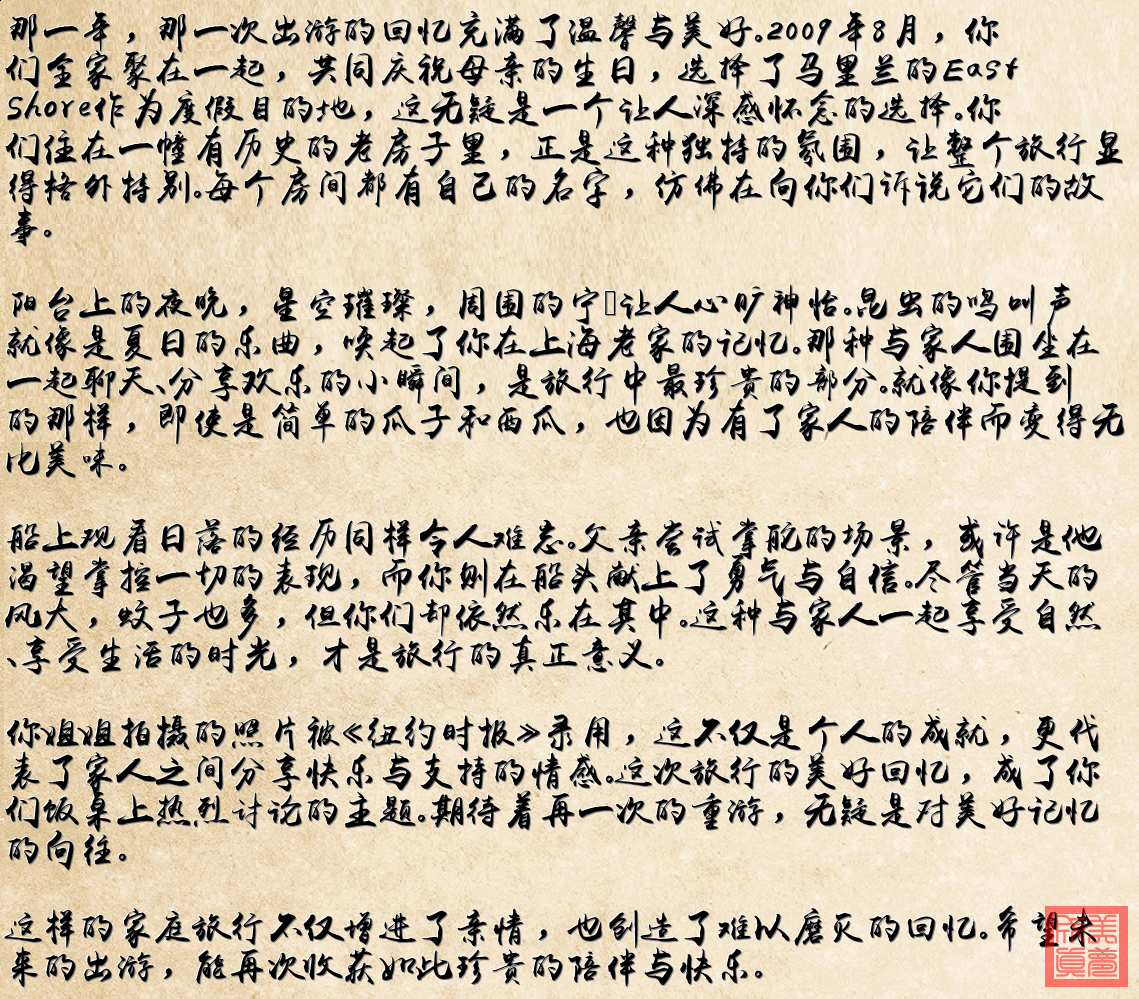 那一年，那一次出游的回忆充满了温馨与美好.2009年8月，你
们全家聚在一起，共同庆祝母亲的生日，选择了马里兰的East
Shore作为度假目的地，这无疑是一个让人深感怀念的选择.你
们住在一幢有历史的老房子里，正是这种独特的氛围，让整个旅行显
得格外特别.每个房间都有自己的名字，仿佛在向你们诉说它们的故
事。
阳台上的夜晚，星空璀璨，周围的宁让人心旷神怡.昆虫的鸣叫声
就像是夏日的乐曲，唤起了你在上海老家的记忆.那种与家人围坐在
一起聊天、分享欢乐的小瞬间，是旅行中最珍贵的部分.就像你提到
的那样，即使是简单的瓜子和西瓜，也因为有了家人的陪伴而变得无
比美味。
船上观看日落的经历同样令人难忘.父亲尝试掌舵的场景，或许是他
渴望掌控一切的表现，而你则在船头献上了勇气与自信.尽管当天的
风大，蚊子也多，但你们却依然乐在其中.这种与家人一起享受自然
、享受生活的时光，才是旅行的真正意义。
你姐姐拍摄的照片被《纽约时报》录用，这不仅是个人的成就，更代
表了家人之间分享快乐与支持的情感.这次旅行的美好回忆，成了你
们饭桌上热烈讨论的主题.期待着再一次的重游，无疑是对美好记忆
的向往。
这样的家庭旅行不仅增进了亲情，也创造了难以磨灭的回忆.希望未
来的出游，能再次收获如此珍贵的陪伴与快乐。